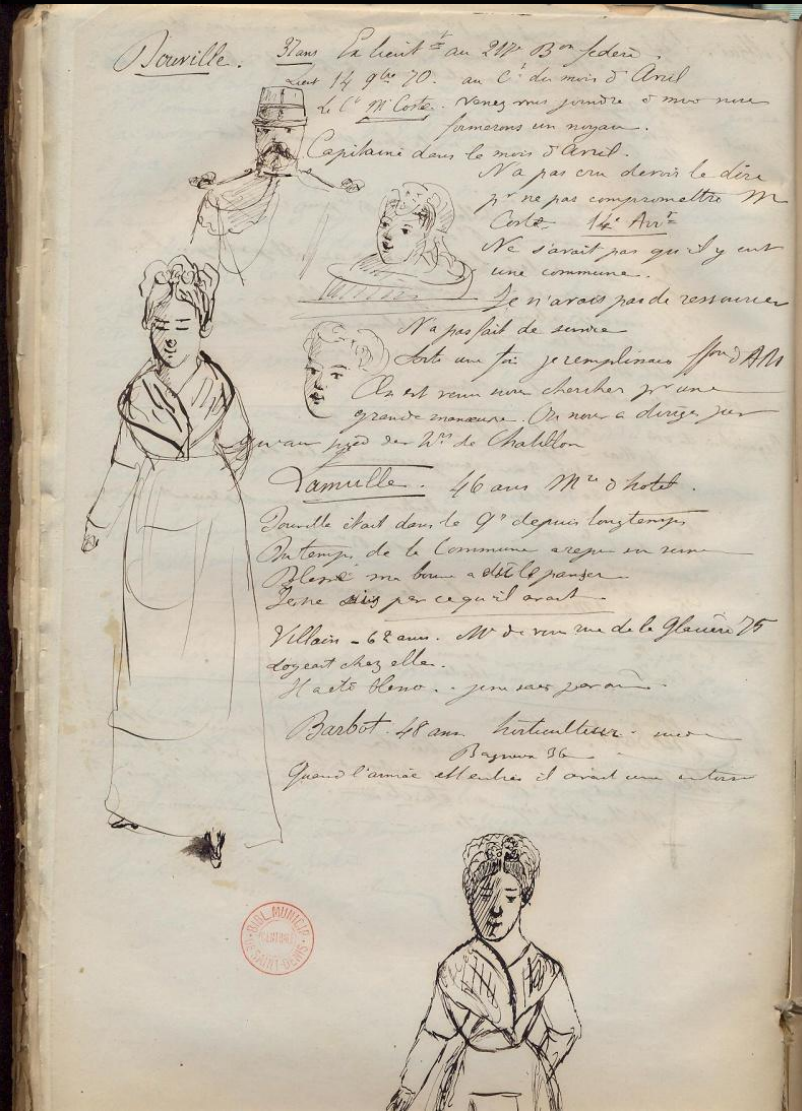 Douville. 37 ans Ex lieut^t au 217^e B^on fédéré.
Lieut 14 9^bre 70. au C^t du mois d'Avril
Le C^t M^r Coste. Venez vous joindre à moi nous
formerons un noyau.
Capitaine dans le mois d'Avril.
N'a pas cru devoir le dire
p^r ne pas compromettre M^r
Coste. 14^e Arr^t
Ne savait pas qu'il y eut
une commune.
Je n'avais pas de ressources
N'a pas fait de service
Sorti une fois je remplissais
On est venu nous chercher p^r une
grande manœuvre. On nous a dirigés jus
qu'au pied des h^rs de Chatillon
46 ans M^re d'hotel.
Douville était dans le depuis longtemps
Du temps de la Commune a reçu
Blessé ma bonne a dû le panser
Je ne sais par ce qu'il avait
Villain - 62 ans. M^d de vin rue de la Glacière 75
Logeait chez elle.
Il a été blessé. je ne sais pas où
Barbot. 48 ans horticulteur.
36
Quand l'armée est entrée il avait une entorse
BIBL. MUNICIP.
SAINT-DENIS